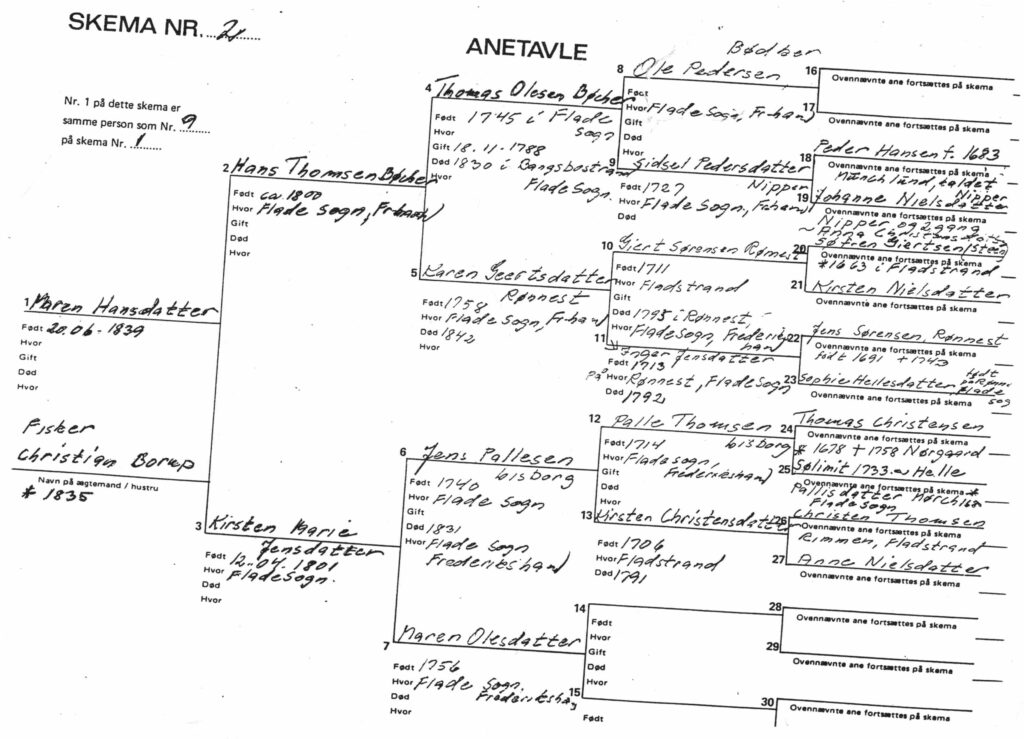 SKEMA NR. 21
ANETAVLE
Nr. 1 på dette skema er
samme person som Nr. 9
på skema Nr. 1
1 Maren Hansdatter
Født 20.06-1839
Hvor
Gift
Død
Hvor
Fisker
Christian Borup
Navn på ægtemand / hustru
* 1835
2 Hans Thomsen Bøcher
Født ca. 1800
Hvor Flade Sogn, Fr.havn
Gift
Død
Hvor
3 Kirsten Marie
Jensdatter
Født 12.04.1801
Hvor Flade Sogn.
Død
Hvor
4 Thomas Olesen Bøcher
Født 1745 i Flade
Sogn
Hvor
Gift 18.11-1788
Død 1830 i Bangsbostrand
Hvor Flade Sogn.
5 Karen Geertsdatter
Rønnest
Født 1758
Hvor Flade Sogn, Fr.havn
Død 1842
Hvor
6 Jens Pallesen
bisborg
Født 1740
Hvor Flade Sogn
Gift
Død 1831
Hvor Flade Sogn
Frederikshavn
7 Maren Olesdatter
Født 1756
Hvor Flade Sogn.
Frederikshavn
Død
Hvor
Bødker
8 Ole Pedersen
Født
Hvor Flade Sogn, Fr.havn
Gift
Død
Hvor
9 Sidsel Pedersdatter
Nipper
Født 1727
Hvor Flade Sogn, Fr.havn
Død
10 Gjert Sørensen Rønnest
Født 1711
Hvor Fladstrand
Gift
Død 1795 i Rønnest,
Hvor Flade Sogn, Frederiks
havn
11 Inger Jensdatter
Født 1713
på Hvor Rønnest, Flade Sogn
Død 1792
12 Palle Thomsen
bisborg
Født 1714
Hvor Flade sogn,
Frederikshavn
Gift
Død
Hvor
13 Kirsten Christensdatter
Født 1706
Hvor Fladstrand
Død 1791
14
Født
Hvor
Gift
Død
Hvor
15
Født
16
Ovennævnte ane fortsættes på skema
17
Ovennævnte ane fortsættes på skema
Peder Hansen f. 1683
18
Ovennævnte ane fortsættes på skema
Munchlund, kaldet
Nipper
19 Johanne Nielsdatter
Ovennævnte ane fortsættes på skema
Nipper og 2 gang
~ Anna
20 Søfren Giertsen
Ovennævnte ane fortsættes på skema
* 1663 i Fladstrand
21 Kirsten Nielsdatter
Ovennævnte ane fortsættes på skema
22 Jens Sørensen, Rønnest
Ovennævnte ane fortsættes på skema
født 1691 + 1743
født
på Rønne
Flade
sog
23 Sophie Hellesdatter
Ovennævnte ane fortsættes på skema
24 Thomas Christensen
Ovennævnte ane fortsættes på skema
* 1678 + 1758 Nørgaard
25 Sølimit 1733 ~ Helle
Ovennævnte ane fortsættes på skema
Pallisdatter
Flade Sogn
26 Christen Thomsen
Ovennævnte ane fortsættes på skema
Rimmen, Fladstrand
27 Anne Nielsdatter
Ovennævnte ane fortsættes på skema
28
Ovennævnte ane fortsættes på skema
29
Ovennævnte ane fortsættes på skema
30
Ovennævnte ane fortsættes på skema